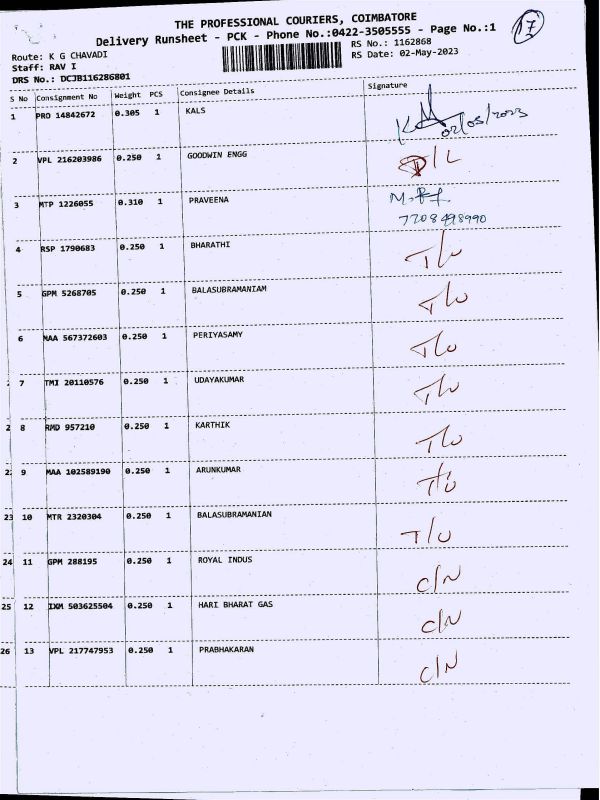 THE PROFESSIONAL COURIERS, COIMBATORE
Delivery Runsheet - PCK - Phone No.:0422-3505555 - Page No.:1
17
Route: K G CHAVADI
RS No.: 1162868
Staff: RAV I
RS Date: 02-May-2023
DRS No.: DCJB116286801
S No Consignment No Weight PCS Consignee Details Signature
1 PRO 14842672 0.305 1 KALS
02/05/2023
2 VPL 216203986 0.250 1 GOODWIN ENGG D/L
3 MTP 1226055 0.310 1 PRAVEENA
7208498990
4 RSP 1790683 0.250 1 BHARATHI T/U
5 GPM 5268705 0.250 1 BALASUBRAMANIAM T/U
6 MAA 567372603 0.250 1 PERIYASAMY T/U
7 TMI 20110576 0.250 1 UDAYAKUMAR T/U
2 8 RMD 957210 0.250 1 KARTHIK T/U
2 9 MAA 102589190 0.250 1 ARUNKUMAR T/U
23 10 MTR 2320304 0.250 1 BALASUBRAMANIAN T/U
24 11 GPM 288195 0.250 1 ROYAL INDUS C/N
25 12 IXM 503625504 0.250 1 HARI BHARAT GAS C/N
26 13 VPL 217747953 0.250 1 PRABHAKARAN C/N